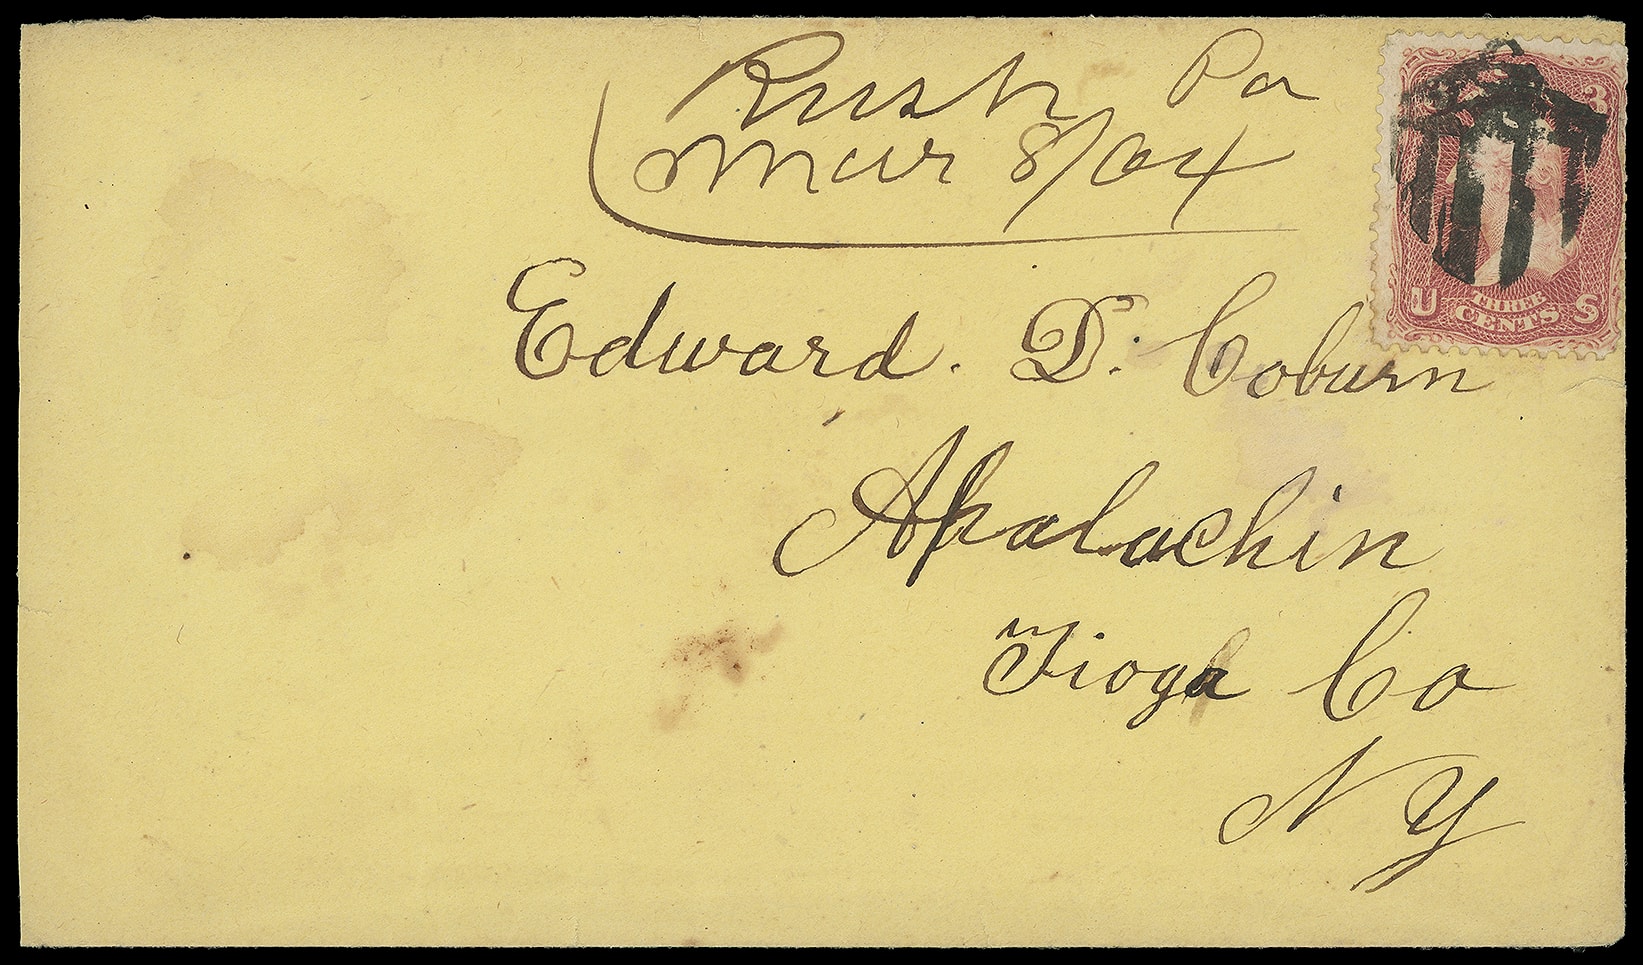 Rush Pa
Mar 8/64
3
U THREE CENTS S
Edward. D. Coburn
Apalachin
Tioga Co
N Y